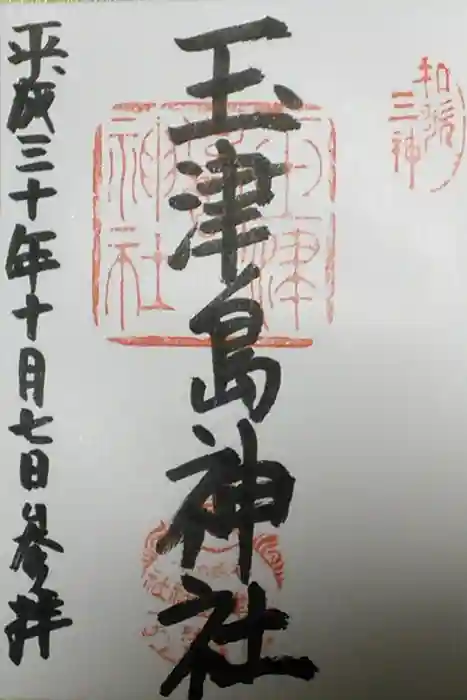 和歌
三神
玉津島神社
玉津
島
神社
平成三十年十月七日参拝